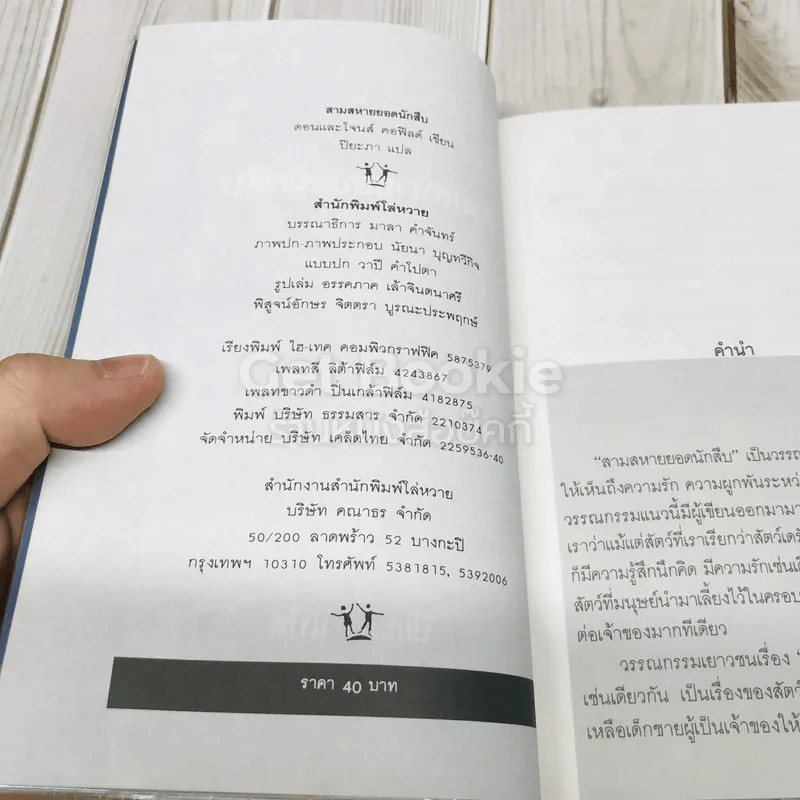 สามสหายยอดนักสืบ
ดอนและโจนส์ คอฟิลด์ เขียน
ปิยะภา แปล
สำนักพิมพ์โล่หวาย
บรรณาธิการ มาลา คำจันทร์
ภาพปก-ภาพประกอบ นัยนา บุญทวีกิจ
แบบปก วาปี คำโปตา
รูปเล่ม อรรคภาค เล้าจินตนาศรี
พิสูจน์อักษร จิตตรา บูรณะประพฤกษ์
เรียงพิมพ์ ไฮ-เทค คอมพิวกราฟฟิค 5875379
เพลทสี ลิต้าฟิล์ม 4243867
เพลทขาวดำ ปิ่นเกล้าฟิล์ม 4182875
พิมพ์ บริษัท ธรรมสาร จำกัด 2210374
จัดจำหน่าย บริษัท เคล็ดไทย จำกัด 2259536-40
สำนักงานสำนักพิมพ์โล่หวาย
บริษัท คณาธร จำกัด
50/200 ลาดพร้าว 52 บางกะปิ
กรุงเทพฯ 10310 โทรศัพท์ 5381815, 5392006
ราคา 40 บาท
Get Bookie
ร้านหนังสือบุ๊คกี้
คำนำ
"สามสหายยอดนักสืบ" เป็นวรรณ
ให้เห็นถึงความรัก ความผูกพันระหว่
วรรณกรรมแนวนี้มีผู้เขียนออกมามา
เราว่าแม้แต่สัตว์ที่เราเรียกว่าสัตว์เดรั
ก็มีความรู้สึกนึกคิด มีความรักเช่นเดี
สัตว์ที่มนุษย์นำมาเลี้ยงไว้ในครอบ
ต่อเจ้าของมากทีเดียว
วรรณกรรมเยาวชนเรื่อง "
เช่นเดียวกัน เป็นเรื่องของสัตว์
เหลือเด็กชายผู้เป็นเจ้าของให้